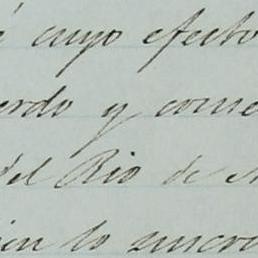 á cuyo efecto
erdo y come
del Rio de
ien lo